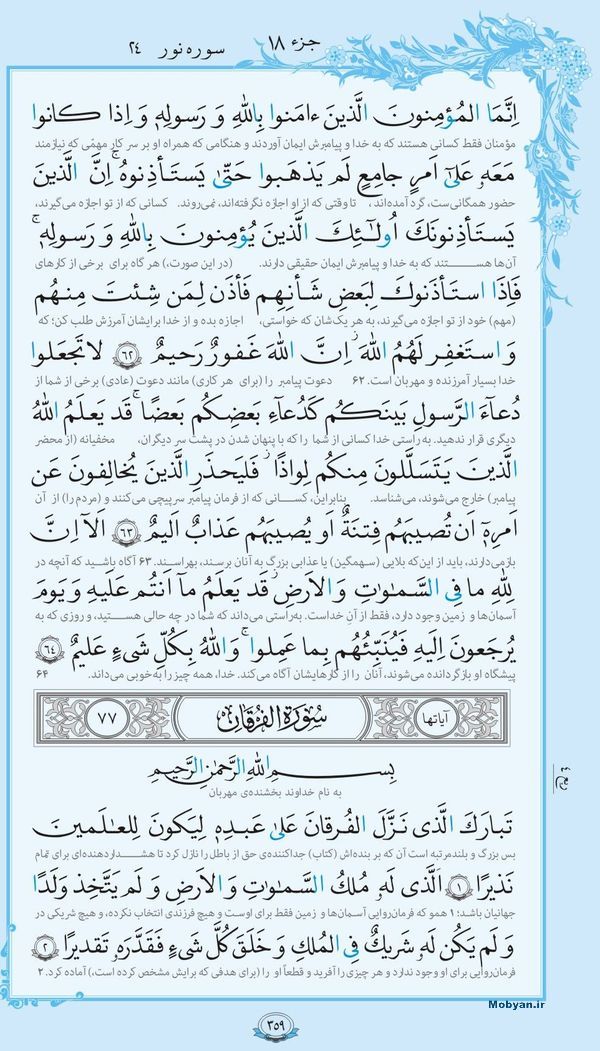 جزء ۱۸
سوره نور ۲۴
اِنَّمَا المُؤمِنونَ الَّذينَ ءامَنوا بِاللهِ وَ رَسولِهِ وَ اِذا كانوا
مؤمنان فقط کسانی هستند که به خدا و پیامبرش ایمان آوردند و هنگامی که همراه او بر سر کار مهمّی که نیازمند
مَعَهُ عَلىٰ اَمرٍ جامِعٍ لَم يَذهَبوا حَتّىٰ يَستَأذِنوهُ ۚ اِنَّ الَّذينَ
حضور همگانی‌ست، گرد آمده‌اند، تا وقتی که از او اجازه نگرفته‌اند، نمی‌روند. کسانی که از تو اجازه می‌گیرند،
يَستَأذِنونَكَ اُولٰئِكَ الَّذينَ يُؤمِنونَ بِاللهِ وَ رَسولِهِ ۚ
آن‌ها هستند که به خدا و پیامبرش ایمان حقیقی دارند. (در این صورت،) هر گاه برای برخی از کارهای
فَاِذَا استَأذَنوكَ لِبَعضِ شَأنِهِم فَأذَن لِمَن شِئتَ مِنهُم
(مهم) خود از تو اجازه می‌گیرند، به هر یک‌شان که خواستی، اجازه بده و از خدا برایشان آمرزش طلب کن؛ که
وَ استَغفِر لَهُمُ اللهَ ۚ اِنَّ اللهَ غَفورٌ رَحيمٌ ۶۲ لا تَجعَلوا
خدا بسیار آمرزنده و مهربان است. ۶۲ دعوت پیامبر را (برای هر کاری) مانند دعوت (عادی) برخی از شما از
دُعاءَ الرَّسولِ بَينَكُم كَدُعاءِ بَعضِكُم بَعضًا ۚ قَد يَعلَمُ اللهُ
دیگری قرار ندهید. به راستی خدا کسانی از شما را که با پنهان شدن در پشت سر دیگران، مخفیانه (از محضر
الَّذينَ يَتَسَلَّلونَ مِنكُم لِواذًا ۚ فَليَحذَرِ الَّذينَ يُخالِفونَ عَن
پیامبر) خارج می‌شوند، می‌شناسد. بنابراین، کسانی که از فرمان پیامبر سرپیچی می‌کنند و (مردم را) از آن
اَمرِهِ اَن تُصيبَهُم فِتنَةٌ اَو يُصيبَهُم عَذابٌ اَليمٌ ۶۳ اَلا اِنَّ
بازمی‌دارند، باید از این‌که بلایی (سهمگین) یا عذابی بزرگ به آنان برسند، بهراسند. ۶۳ آگاه باشید که آنچه در
لِلهِ ما فِي السَّمٰوٰتِ وَ الاَرضِ ۖ قَد يَعلَمُ ما اَنتُم عَلَيهِ وَ يَومَ
آسمان‌ها و زمین وجود دارد، فقط از آنِ خداست. به‌راستی می‌داند که شما در چه حالی هستید، و روزی که به
يُرجَعونَ اِلَيهِ فَيُنَبِّئُهُم بِما عَمِلوا ۚ وَ اللهُ بِكُلِّ شَيءٍ عَليمٌ ۶۴
پیشگاه او بازگردانده می‌شوند، آنان را از کارهایشان آگاه می‌کند. خدا، همه چیز را به‌خوبی می‌داند. ۶۴
آیاتها
سُورَةُ الفُرقان
۷۷
بِسمِ اللهِ الرَّحمٰنِ الرَّحيمِ
به نام خداوند بخشنده‌ی مهربان
تَبارَكَ الَّذي نَزَّلَ الفُرقانَ عَلىٰ عَبدِهِ لِيَكونَ لِلعٰلَمينَ
بس بزرگ و بلندمرتبه است آن که بر بنده‌اش (کتاب) جداکننده‌ی حق از باطل را نازل کرد تا هشداردهنده‌ای برای تمام
نَذيرًا ۱ اَلَّذي لَهُ مُلكُ السَّمٰوٰتِ وَ الاَرضِ وَ لَم يَتَّخِذ وَلَدًا
جهانیان باشد؛ ۱ همو که فرمان‌روایی آسمان‌ها و زمین فقط برای اوست و هیچ فرزندی انتخاب نکرده، و هیچ شریکی در
وَ لَم يَكُن لَهُ شَريكٌ فِي المُلكِ وَ خَلَقَ كُلَّ شَيءٍ فَقَدَّرَهُ تَقديرًا ۲
فرمان‌روایی برای او وجود ندارد و هر چیزی را آفرید و قطعاً او را (برای هدفی که برایش مشخص کرده است،) آماده کرد. ۲
۳۵۹
Mobyan.ir